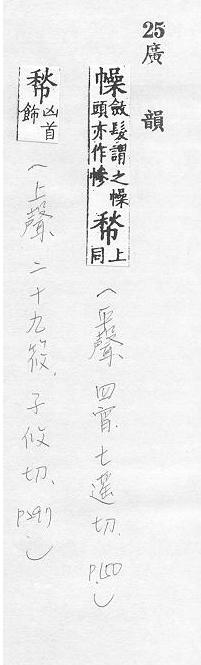 25 廣韻
幧 斂髮謂之幧頭亦作幓 上同 (平聲、四宵、七遙切、P.150)
凶首飾 (上聲、二十九筱、子攸切、P.297)